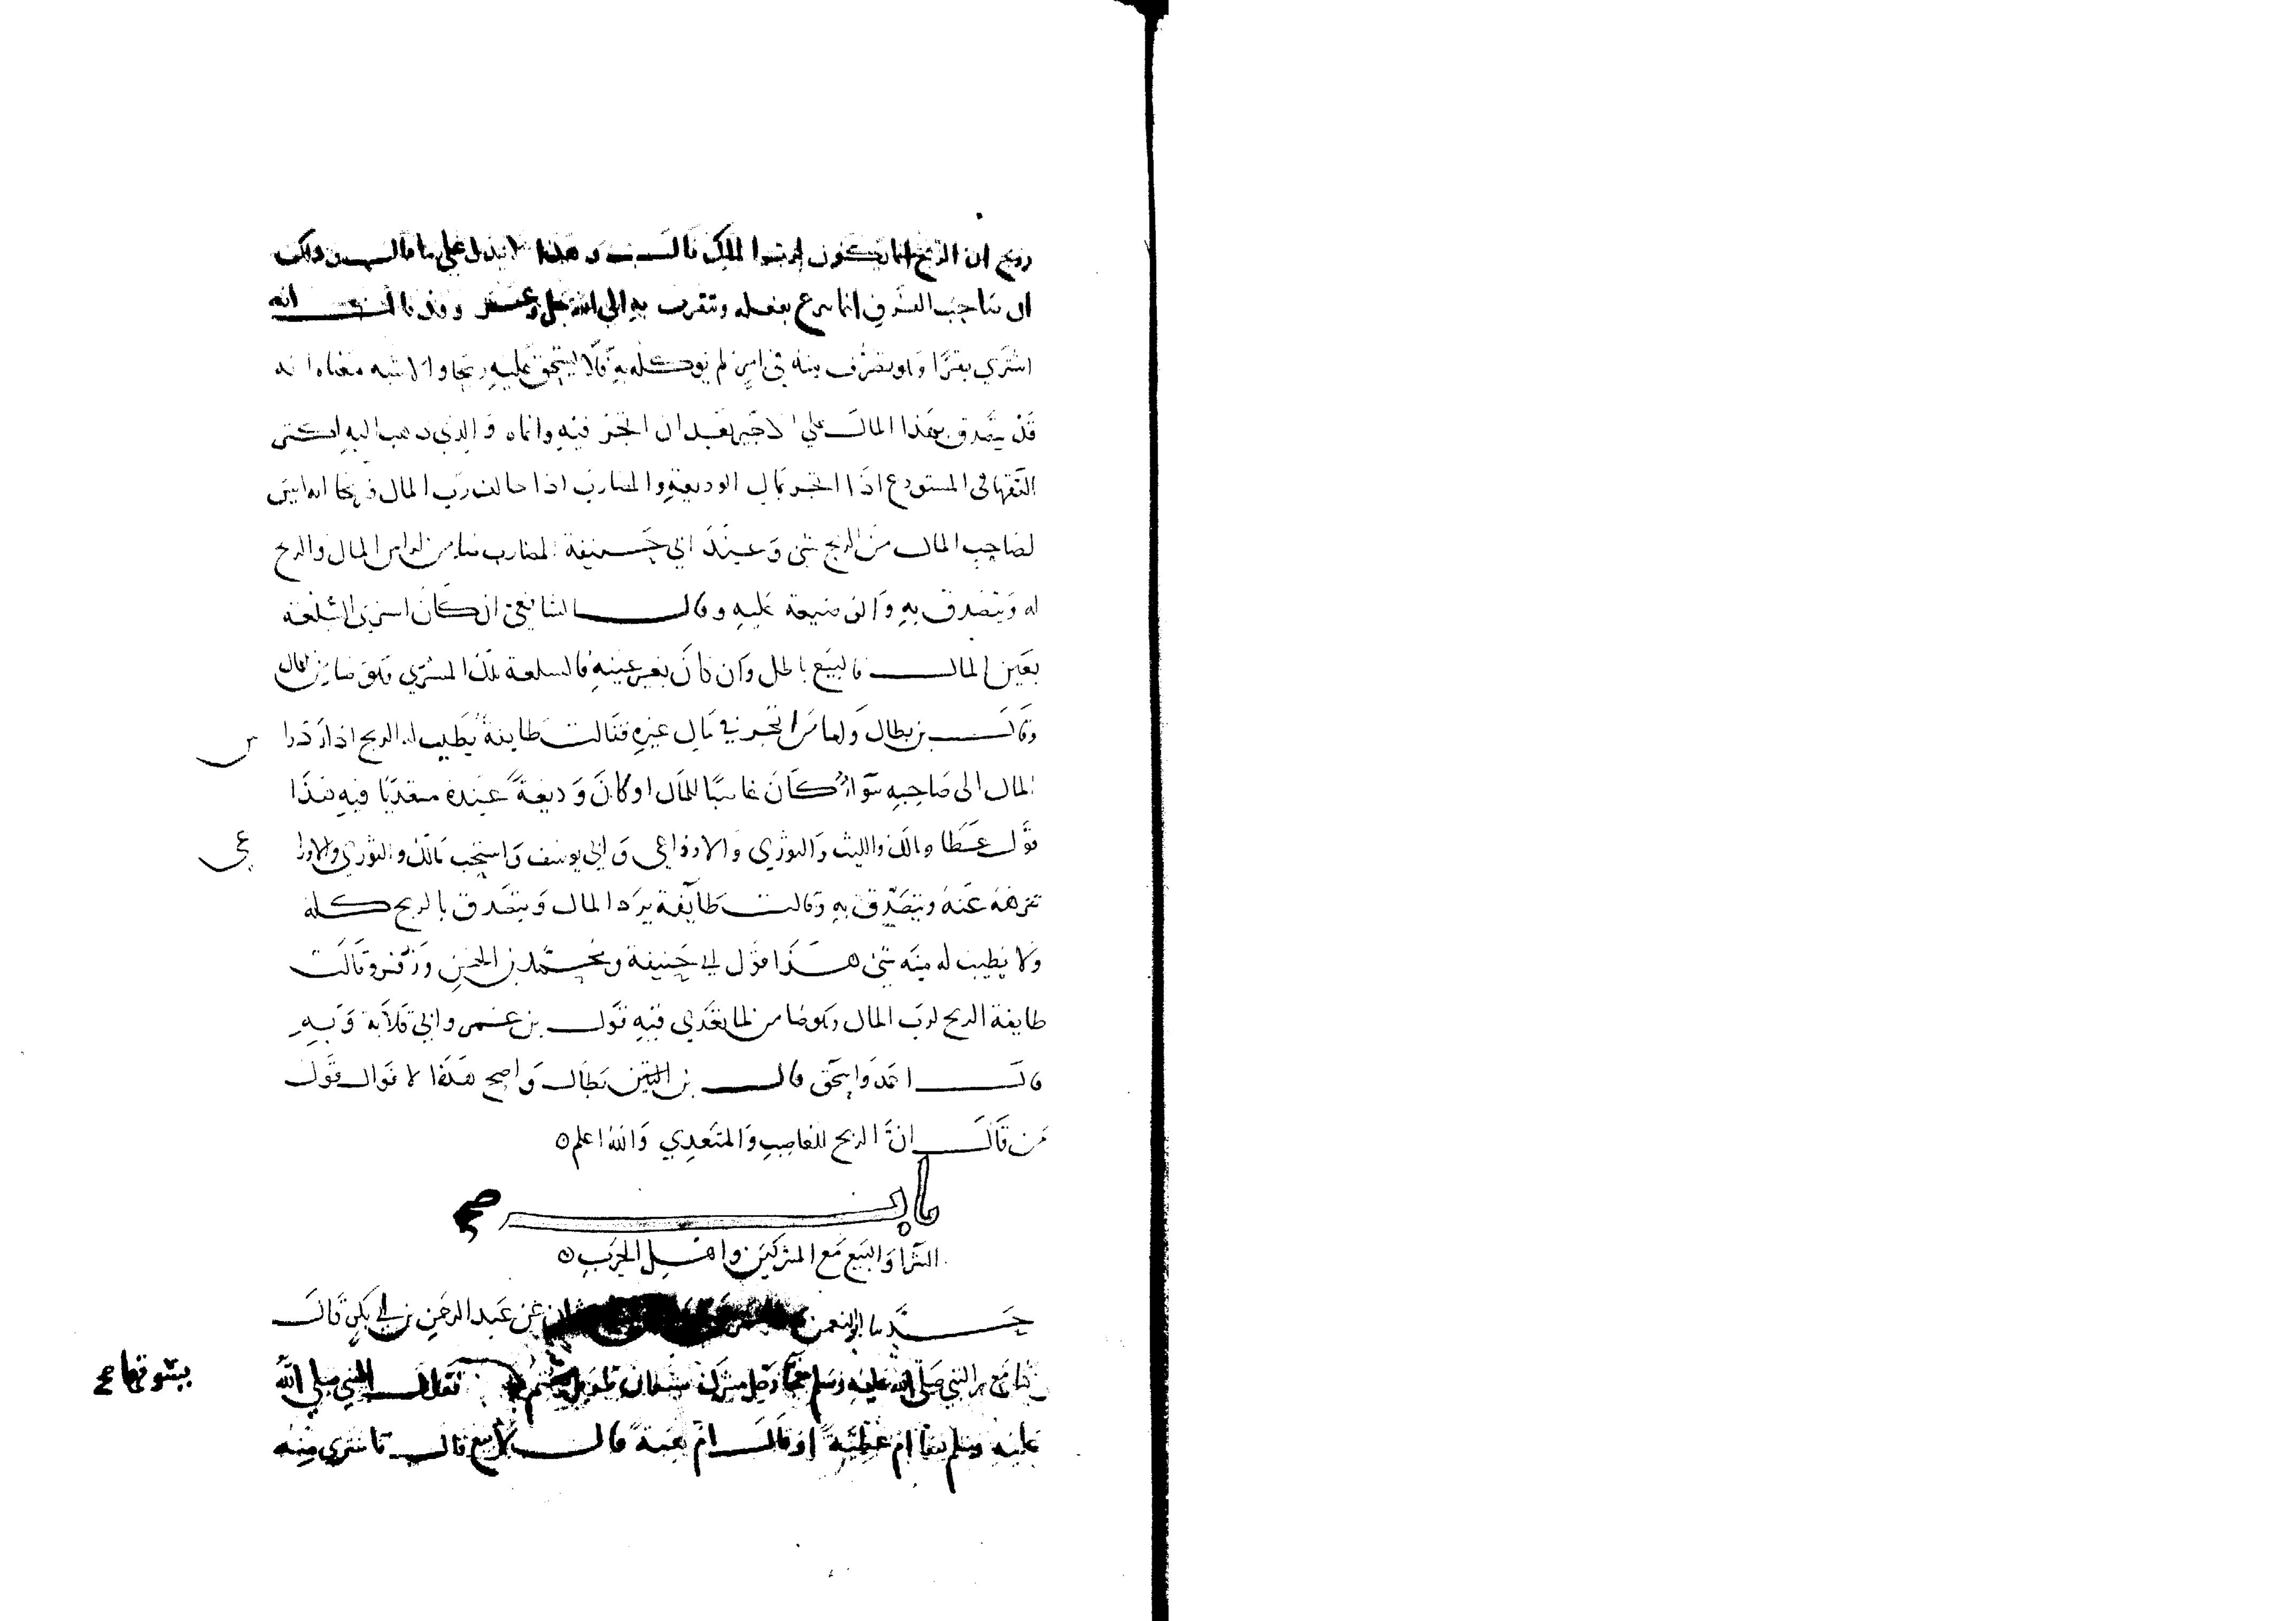 روح ان الربح انما يكون لرب الملك قال وهذا لا يدل على ما قال وذلك
ان صاحب الفرق انما تبرع بفعله وتقرب به الى الله عز وجل وقد قال انه
اشترى بقرا وهو تصرف منه في امر لم يوكله به فلا يستحق عليه ربحا والاشبه معناه انه
قد تصدق بهذا المال على الاجير بعد ان اتجر فيه وانماه والذي ذهب اليه اكثر
الفقها في المستودع اذا اتجر بمال الوديعة والمضارب اذا خالف رب المال فربحا انه ليس
لصاحب المال من الربح شى وعند ابي حنيفة المضارب ضامن لراس المال والربح
له ويتصدق به والوضيعة عليه وقال الشافعي ان كان اشترى السلعة
بعين المال فالبيع باطل وان كان بغير عينه فالسلعة ملك المشتري وهو ضامن للمال
وقال بن بطال واما من اتجر في مال غيره فقالت طايفة يطيب له الربح اذا رد را س
المال الى صاحبه سواء كان غاصبا للمال او كان وديعة عنده متعديا فيه هذا
قول عطا ومالك والليث والثوري والاوزاعي وابي يوسف واستحب مالك والثوري والاوزا عي
تنزهه عنه ويتصدق به وقالت طايفة يرد المال ويتصدق بالربح كله
ولا يطيب له منه شى هذا قول ابي حنيفة ومحمد بن الحسن وزفر وقالت
طايفة الربح لرب المال وهو ضامن لما تعدى فيه قول بن عمر وابي قلابة وبه
قال احمد واسحق قال بن بطال واصح هذه الاقوال قول
من قال ان الربح للغاصب والمتعدي والله اعلم
باب صح
الشرا والبيع مع المشركين واهل الحرب
حدثنا ابو النعمن عن عبد الرحمن بن ابي بكر قال
كنا مع النبي صلى الله عليه وسلم ثم جا رجل مشرك مشعان طويل بغنم يسوقها فقال النبي صلى الله
عليه وسلم بيعا ام عطية او قال ام هبة قال لا بيع قال فاشترى منه